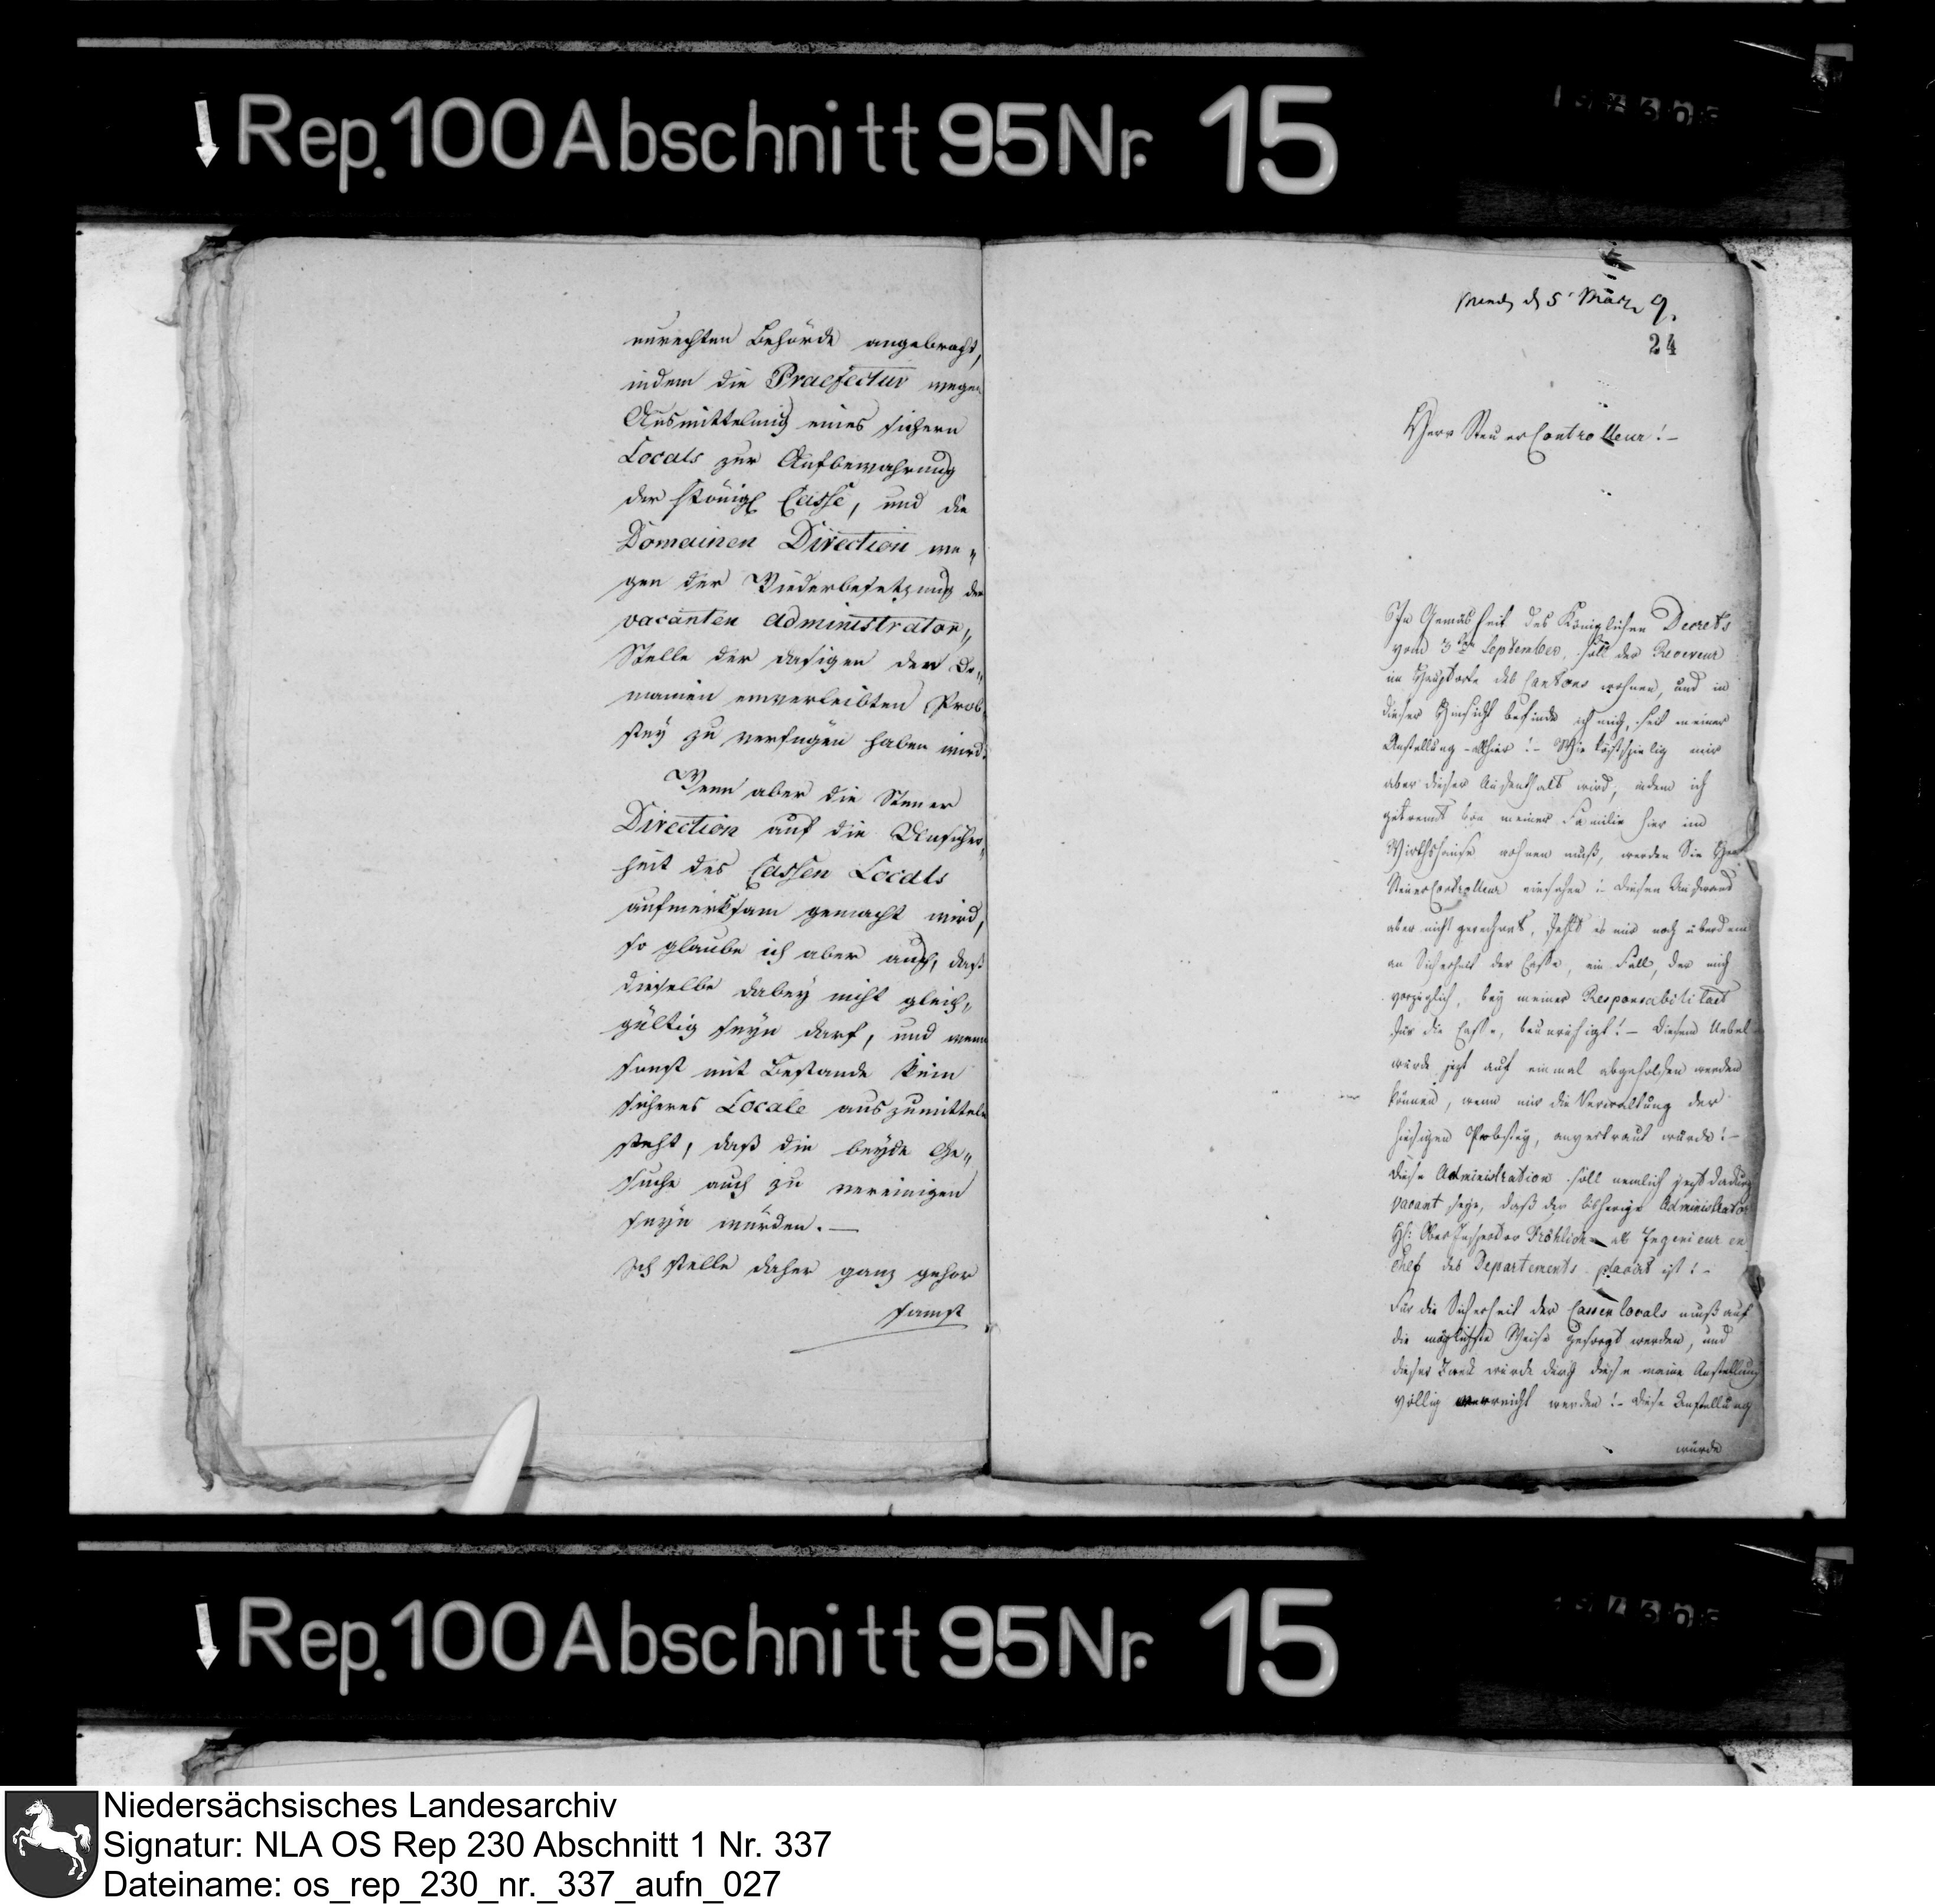 Rep. 100 Abschnitt 95 Nr. 15
unrechten Behörde angebracht,
indem die Praefectur wegen
Ausmittelung eines sichern
Locals zur Aufbewahrung
der Königl Casse, und die
Domainen Direction we„
gen der Wiederbesetzung der
vacanten Administrator„
Stelle der dasigen den Do„
mainen einverleibten Prob„
stey zu verfügen haben wird.
Wenn aber die Steuer
Direction auf die Unsicher„
heit des Cassen Locals
aufmerksam gemacht wird,
so glaube ich aber auch, daß
dieselbe dabey nicht gleich„
gültig seyn darf, und wenn
sonst mit Bestande kein
sicheres Locale auszumitteln
steht, daß die beyde Ge„
suche auch zu vereinigen
seyn würden. —
Ich stelle daher ganz gehor
samst
den 5 März 9.
24
Herr SteuerControlleur! –
In Gemäsheit des Königlichen Decrets
vom 3ten September, soll der Receveur
im Hauptorte des Cantons wohnen, und in
dieser Hinsicht befinde ich mich, seit meiner
Anstellung – Hier! – Wie kostspielig mir
aber dieser Aufenthalt wird, indem ich
getrennt von meiner Familie hier im
Wirthshause wohnen muß, werden Sie Herr
SteuerControlleur einsehen :– diesen Aufwand
aber nicht gerechnet, fehlt es mir noch überdem
an Sicherheit der Casse, ein Fall, der mich
vorzüglich, bey meiner Responsabilitaet
für die Casse, beunruhigt! – Diesem Uebel
würde jezt auf einmal abgeholfen werden
können, wenn mir die Verwaltung der
hiesigen Probstey, anvertraut würde! –
Diese Administration soll nemlich jezt dadurch
vacant seyn, daß der bisherige Administrator
H: Ober Inspector Fröhlich als Ingenieur en
Chef des Departements placirt ist! –
Für die Sicherheit der Cassenlocals muß auf
die möglichste Weise gesorgt werden, und
dieser Zweck würde durch diese meine Anstellung
völlig erreicht werden! – Diese Anstellung
würde
Rep. 100 Abschnitt 95 Nr. 15
Niedersächsisches Landesarchiv
Signatur: NLA OS Rep 230 Abschnitt 1 Nr. 337
Dateiname: os_rep_230_nr._337_aufn_027